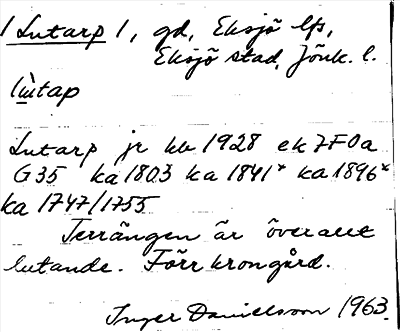 /Lutarp/, gd, Eksjö lfs,
Eksjö stad, Jönk. l.
lùtap
Lutarp jr kb 1928 ek 7F0a
G35 ka 1803 ka 1841* ka 1896*
ka 1747/1755
Terrängen är överallt
lutande. Förr krongård.
Inger Danielsson 1963.